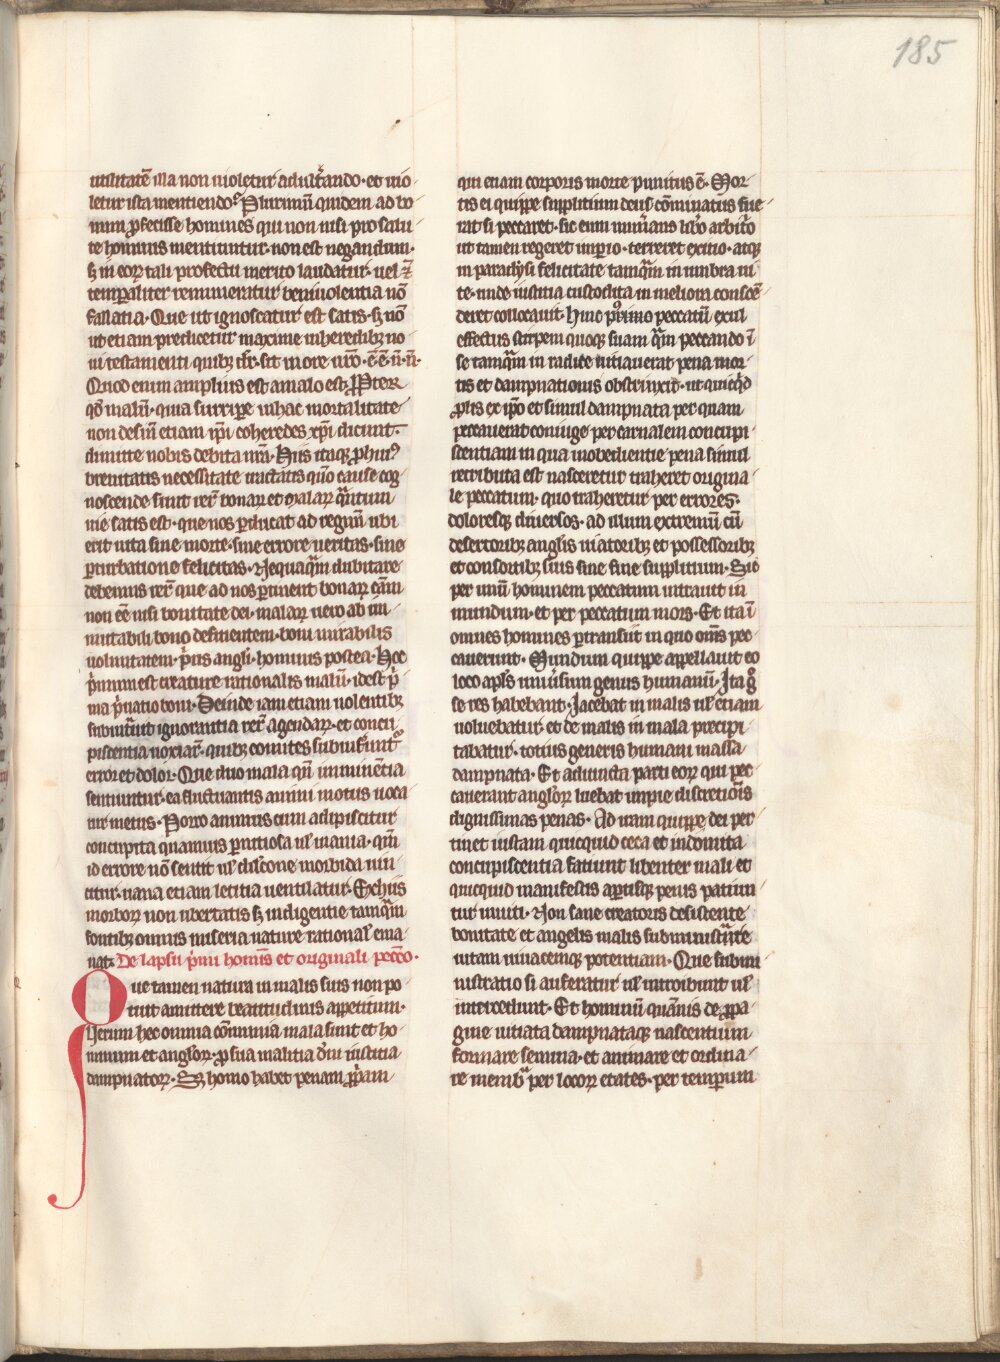 185
utilitatē illa non uioletur adult̄ando · et uio
letur ista mentiendo? Plurimū quidem ad bo
num ꝓfecisse homines qui non nisi pro salu
te hominis mentiuntur · non est negandum ·
sꝫ in eoꝝ tali profectu merito laudatur · uel ⁊
temꝑaliter remuneratur beniuolentia nō
fallatia · Que ut ignoscatur est satis · sꝫ nō
ut etiam predicetur maxime in heredibꝫ no
ui testamenti quibꝫ dr̄ · sit in ore ur̄o · ē ē · n̄ n̄ ·
Quod enim amplius est a malo est · Propter
qd̄ malū · quia surripe in hac mortalitate
non desin̄ etiam ip̄i coheredes xp̄i dicunt ·
dimitte nobis debita nr̄a · Hiis itaqꝫ ꝓ hui9
breuitatis necessitate tractatis qm̄ cause cog
noscende sunt rer̄ bonaꝝ et malaꝝ qͣntum
uie satis est · que nos ꝑducat ad regnū ubi
erit uita sine morte · sine errore ueritas · sine
ꝑturbatione felicitas · Nequaqͣm dubitare
debemus rer̄ que ad nos ꝑtinent bonaꝝ cām
non eē nisi bonitate dei · malaꝝ uero ab im
mutabili bono deficientem · boni mutabilis
uoluntatem · p̄us angl̄i · hominis postea · Hoc
p̄mum est creature rationalis malū · idest p̄
ma p̄uatio boni · Deinde iam etiam nolentibꝫ
subintͣuit ignorantia rer̄ agendaꝝ · et concu
piscentia noxiaꝝ · quibꝫ comites subinferunt̄
error et dolor · Que duo mala qn̄ imminētia
sentiuntur · ea fluctuantis animi motus uoca
tur metus · Porro animus cum adipiscitur
concupita quamuis ꝑnitiosa ul̄ inania · qm̄
id errore nō sentit ul̄ delc̄one morbida uin
citur · uana etiam letitia uentilatur · Ex hiis
morboꝝ non ubertatis sꝫ indigentie tamqͣm
fontibꝫ omnis miseria nature rational̄ ema
nat · De lapsu p̄mi homīs et originali pecc̄o ·
Que tamen natura in malis suis non po
tuit amittere beatitudinis appetitum ·
Uerum hec omnia cōmunia mala sunt et ho
minum et angl̄oꝝ · ꝓ sua malitia dn̄i iustitia
dampnatoꝝ · Sꝫ homo habet penam ꝓpͥam
qui etiam corporis morte punitus ē · Mor
tis ei quippe supplitium deus cōminatus fue
rat si peccaret · sic enim munīans libͦo arbitͥo
ut tamen regeret imꝑio · terreret exitio · atqꝫ
in paradysi felicitate tamqͣm in umbra ui
te · unde iustitia custodita in meliora conscē
deret collocauit · Hinc pͦ primo peccatū exul
effectus stirpem quoqꝫ suam qͣm peccando ī
se tamqͣm in radice uitiauerat pena mor
tis et dampnationis obstrinxit · ut quicqͥd
ꝓlis ex ip̄o et simul dampnata per quam
peccauerat coniuge per carnalem concupi
scentiam in qua inobedientie pena simil
retributa est nasceretur traheret origina
le peccatum · quo traheretur per errores ·
doloresqꝫ diuersos · ad illum extremū cū
desertoribꝫ angl̄is uitatoribꝫ et possessoribꝫ
et consortibꝫ suis sine fine supplitium · Sic
per unū hominem peccatum intrauit in
mundum · et per peccatum mors · Et ita ī
omnes homines ꝑtransiit in quo om̄s pec
cauerunt · Mundum quippe appellauit eo
loco apl̄s uniūsum genus humanū · Ita gͦ
se res habebant · Jacebat in malis ul̄ etiam
uoluebatur et de malis in mala precipi
tabatur · totius generis humani massa
dampnata · Et adiuncta parti eoꝝ qui pec
cauerant angl̄oꝝ luebat impie discretiōis
dignissimas penas · Ad iram quippe dei per
tinet iustam quicquid ceca et indomita
concupiscentia fatiunt libenter mali et
quicquid manifestis aꝑtisqꝫ penis patiun
tur inuiti · Non sane creatoris desistente
bonitate et angelis malis subministͣre
uitam uiuacemqꝫ potentiam · Que submi
nistratio si auferatur ul̄ introibunt ul̄
intercedunt · Et hominū quāuis de ꝓpa
gine uitiata dampnataqꝫ nascentium
formare semina · et animare et ordina
re membͣ per locoꝝ etates · per temporum